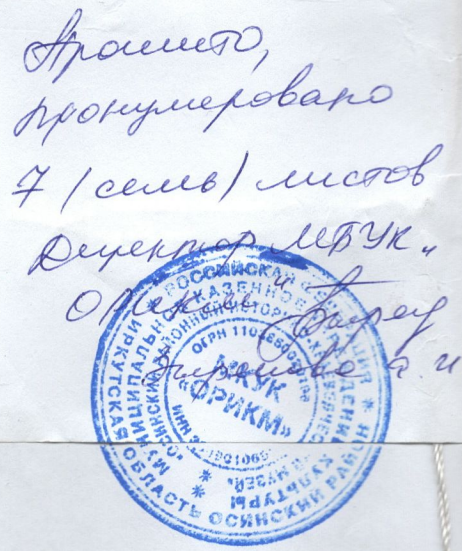 Прошито,
пронумеровано
7 (семь) листов
Директор МБУК „
ОРИКМ"
РОССИЙСКАЯ ФЕДЕРАЦИЯ
ИРКУТСКАЯ ОБЛАСТЬ ОСИНСКИЙ РАЙОН
МУНИЦИПАЛЬНОЕ КАЗЕННОЕ УЧРЕЖДЕНИЕ КУЛЬТУРЫ
ОГРН
ИНН
МКУК
«ОРИКМ»